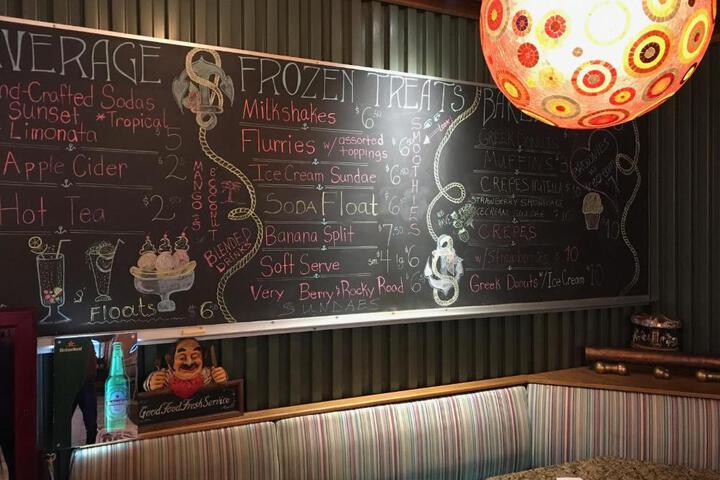 VERAGE
nd-Crafted Sodas
Sunset, *Tropical
Limonata 5
Apple Cider 2
Hot Tea 2
Floats $6
MANGO
COCONUT
BLENDED
DRINKS
FROZEN TREATS
Milkshakes $6
Flurries w/ assorted
toppings 6
Ice Cream Sundae $6
Soda Float 6
Banana Split 7.50
Soft Serve sm 4 lg 6
Very Berry & Rocky Road 6
SUNDAES
SMOOTHIES
BAK
GREEK DONUTS
MUFFINS $3
CREPES NUTELLA
STRAWBERRY SHORTCAKE
ICE CREAM SUNDAE $10
CREPES
w/ Strawberries $10
Greek Donuts w/ Ice Cream $10
Heineken
Good Food Fresh Service